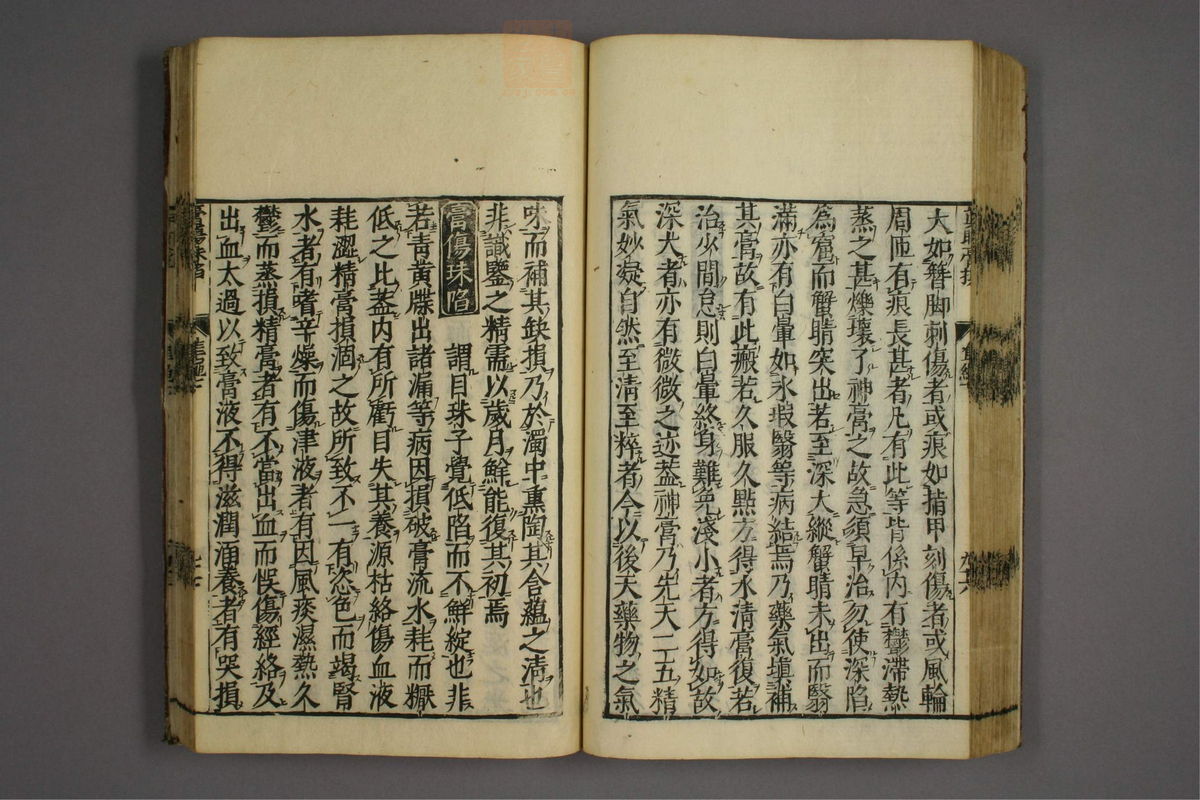 大如簪脚刺傷者或痕如指甲刻傷者或風輪
周匝有痕長甚者凢有此等皆係内有鬱滯熱
蒸之甚爍壞了神膏之故急須早治勿使深陷
為窟而蟹睛突出若至深大縱蟹睛未出而翳
滿亦有白暈如氷瑕翳等病結焉乃藥氣塡補
其膏故有此瘢若久服久點方得水清膏復若
治少間怠則白暈終身難免淺小者方得如故
深大者亦有微微之迹蓋神膏乃先天二五精
氣妙凝自然至清至粹者今以後天藥物之氣
味而補其缺損乃於濁中熏陶其含蘊之清也
非識鑒之精需以歲月鮮能復其初焉
膏傷珠陷
謂目珠子覺低陷而不鮮綻也非
若青黃牒出諸漏等病因損破膏流水耗而
低之比蓋内有所虧目失其養源枯絡傷血液
耗澀精膏損涸之故所致不一有恣色而竭腎
水者有嗜辛燥而傷津液者有因風痰濕熱久
鬱而蒸損精膏者有不當出血而悞傷經絡及
出血太過以致膏液不得滋潤涵養者有哭損